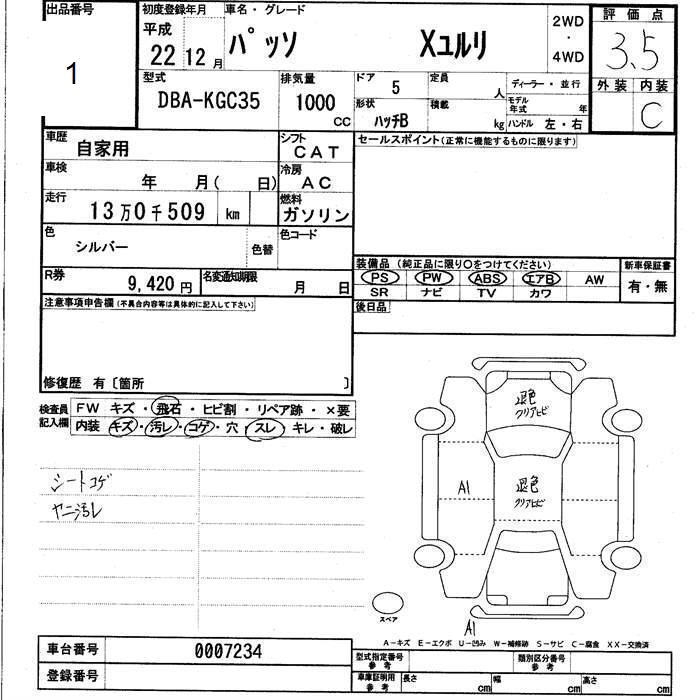 出品番号
1
初度登録年月 車名・グレード
平成
22 12 月 パッソ Xユルリ
2WD
・
4WD
評価点
3.5
外装 内装
C
型式 排気量
DBA-KGC35 1000 CC
ドア 5 定員 人
形状 ハッチB 積載 kg
ディーラー・並行
モデル年式 年
ハンドル 左・右
車歴 自家用
シフト CAT
車検 年 月( 日)
冷房 AC
走行 13万0千509 km
燃料 ガソリン
色 シルバー 色替
色コード
R券 9,420 円
名変通知期限 月 日
セールスポイント(正常に機能するものに限ります)
装備品 (純正品に限り○をつけてください)
PS PW ABS エアB AW
SR ナビ TV カワ
新車保証書
有・無
後日品
注意事項申告欄(不具合内容等は具体的に記入して下さい)
修復歴 有〔箇所 〕
検査員記入欄
FW キズ・飛石・ヒビ割・リペア跡・×要
内装 キズ・汚レ・コゲ・穴・スレ・キレ・破レ
シートコゲ
ヤニ汚レ
退色
クリアヒビ
A1
退色
クリアヒビ
スペア
A1
A-キズ E-エクボ U-凹み W-補修跡 S-サビ C-腐食 XX-交換済
車台番号 0007234
登録番号
型式指定番号 参考
類別区分番号 参考
車庫証明用 参考
長さ cm 幅 cm 高さ cm